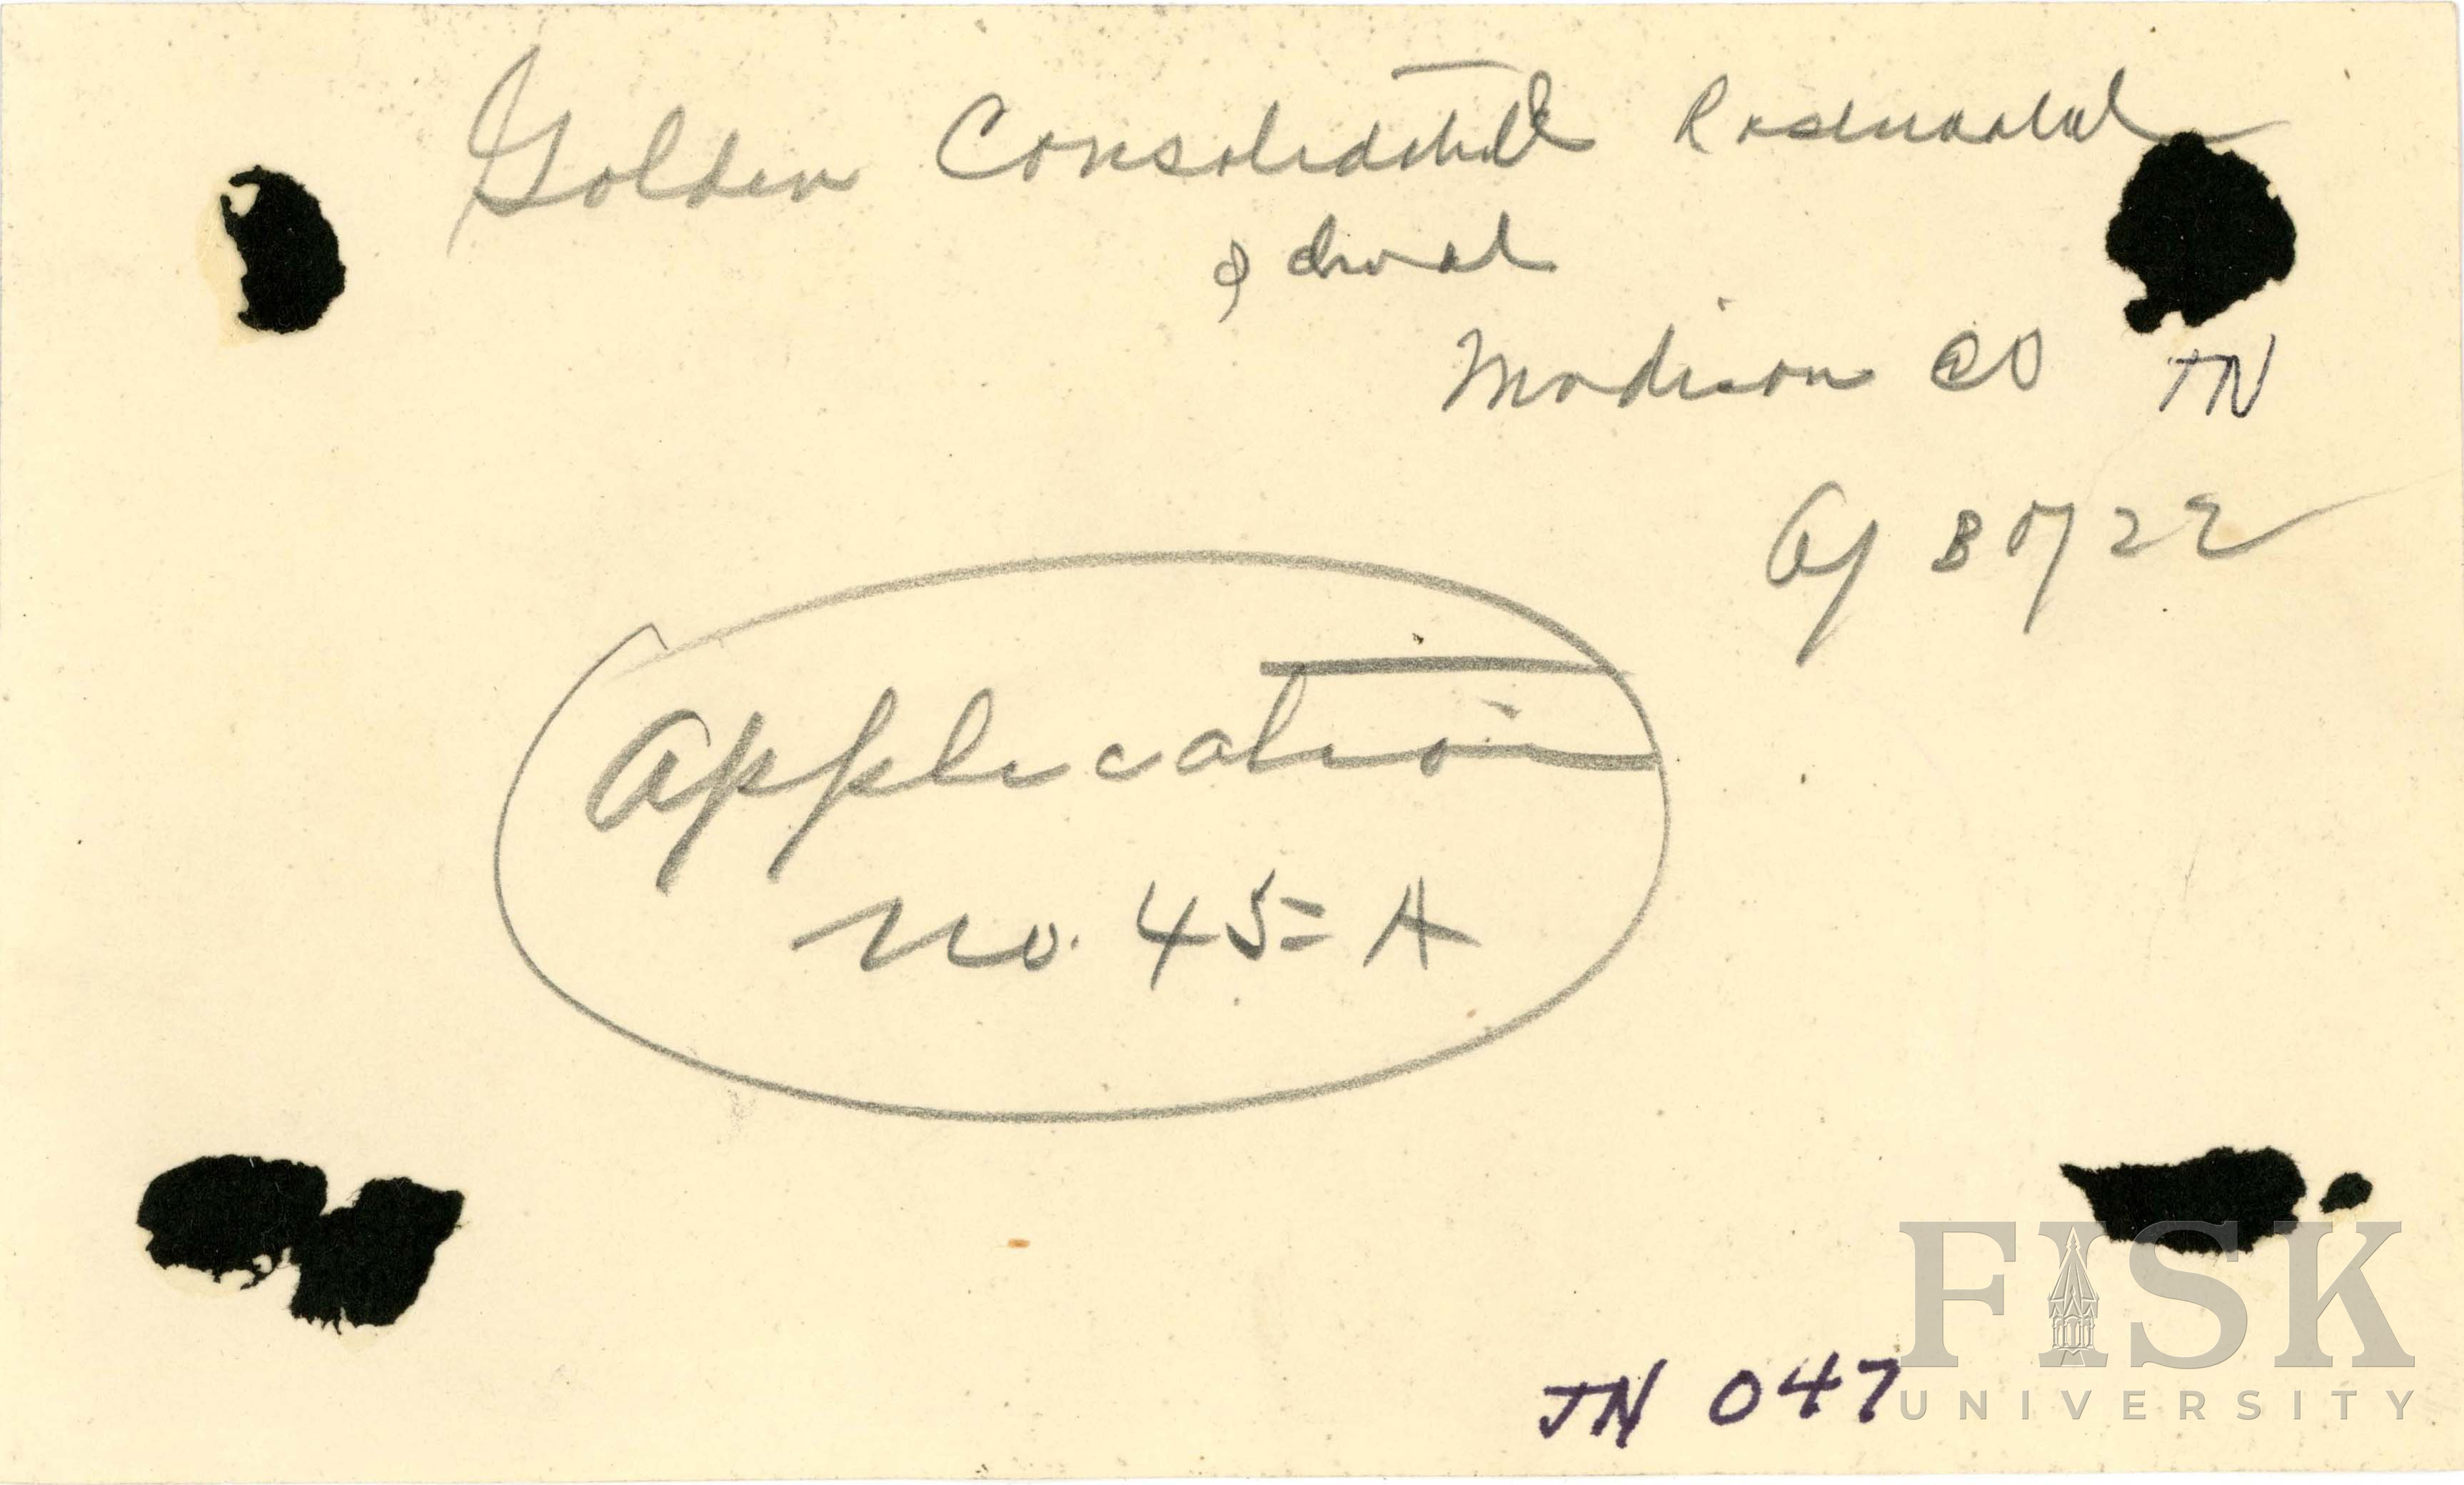 Golden Consolidated Rosenwald
School
Madison CO TN
Application
No. 45=A
TN 047
FISK
UNIVERSITY